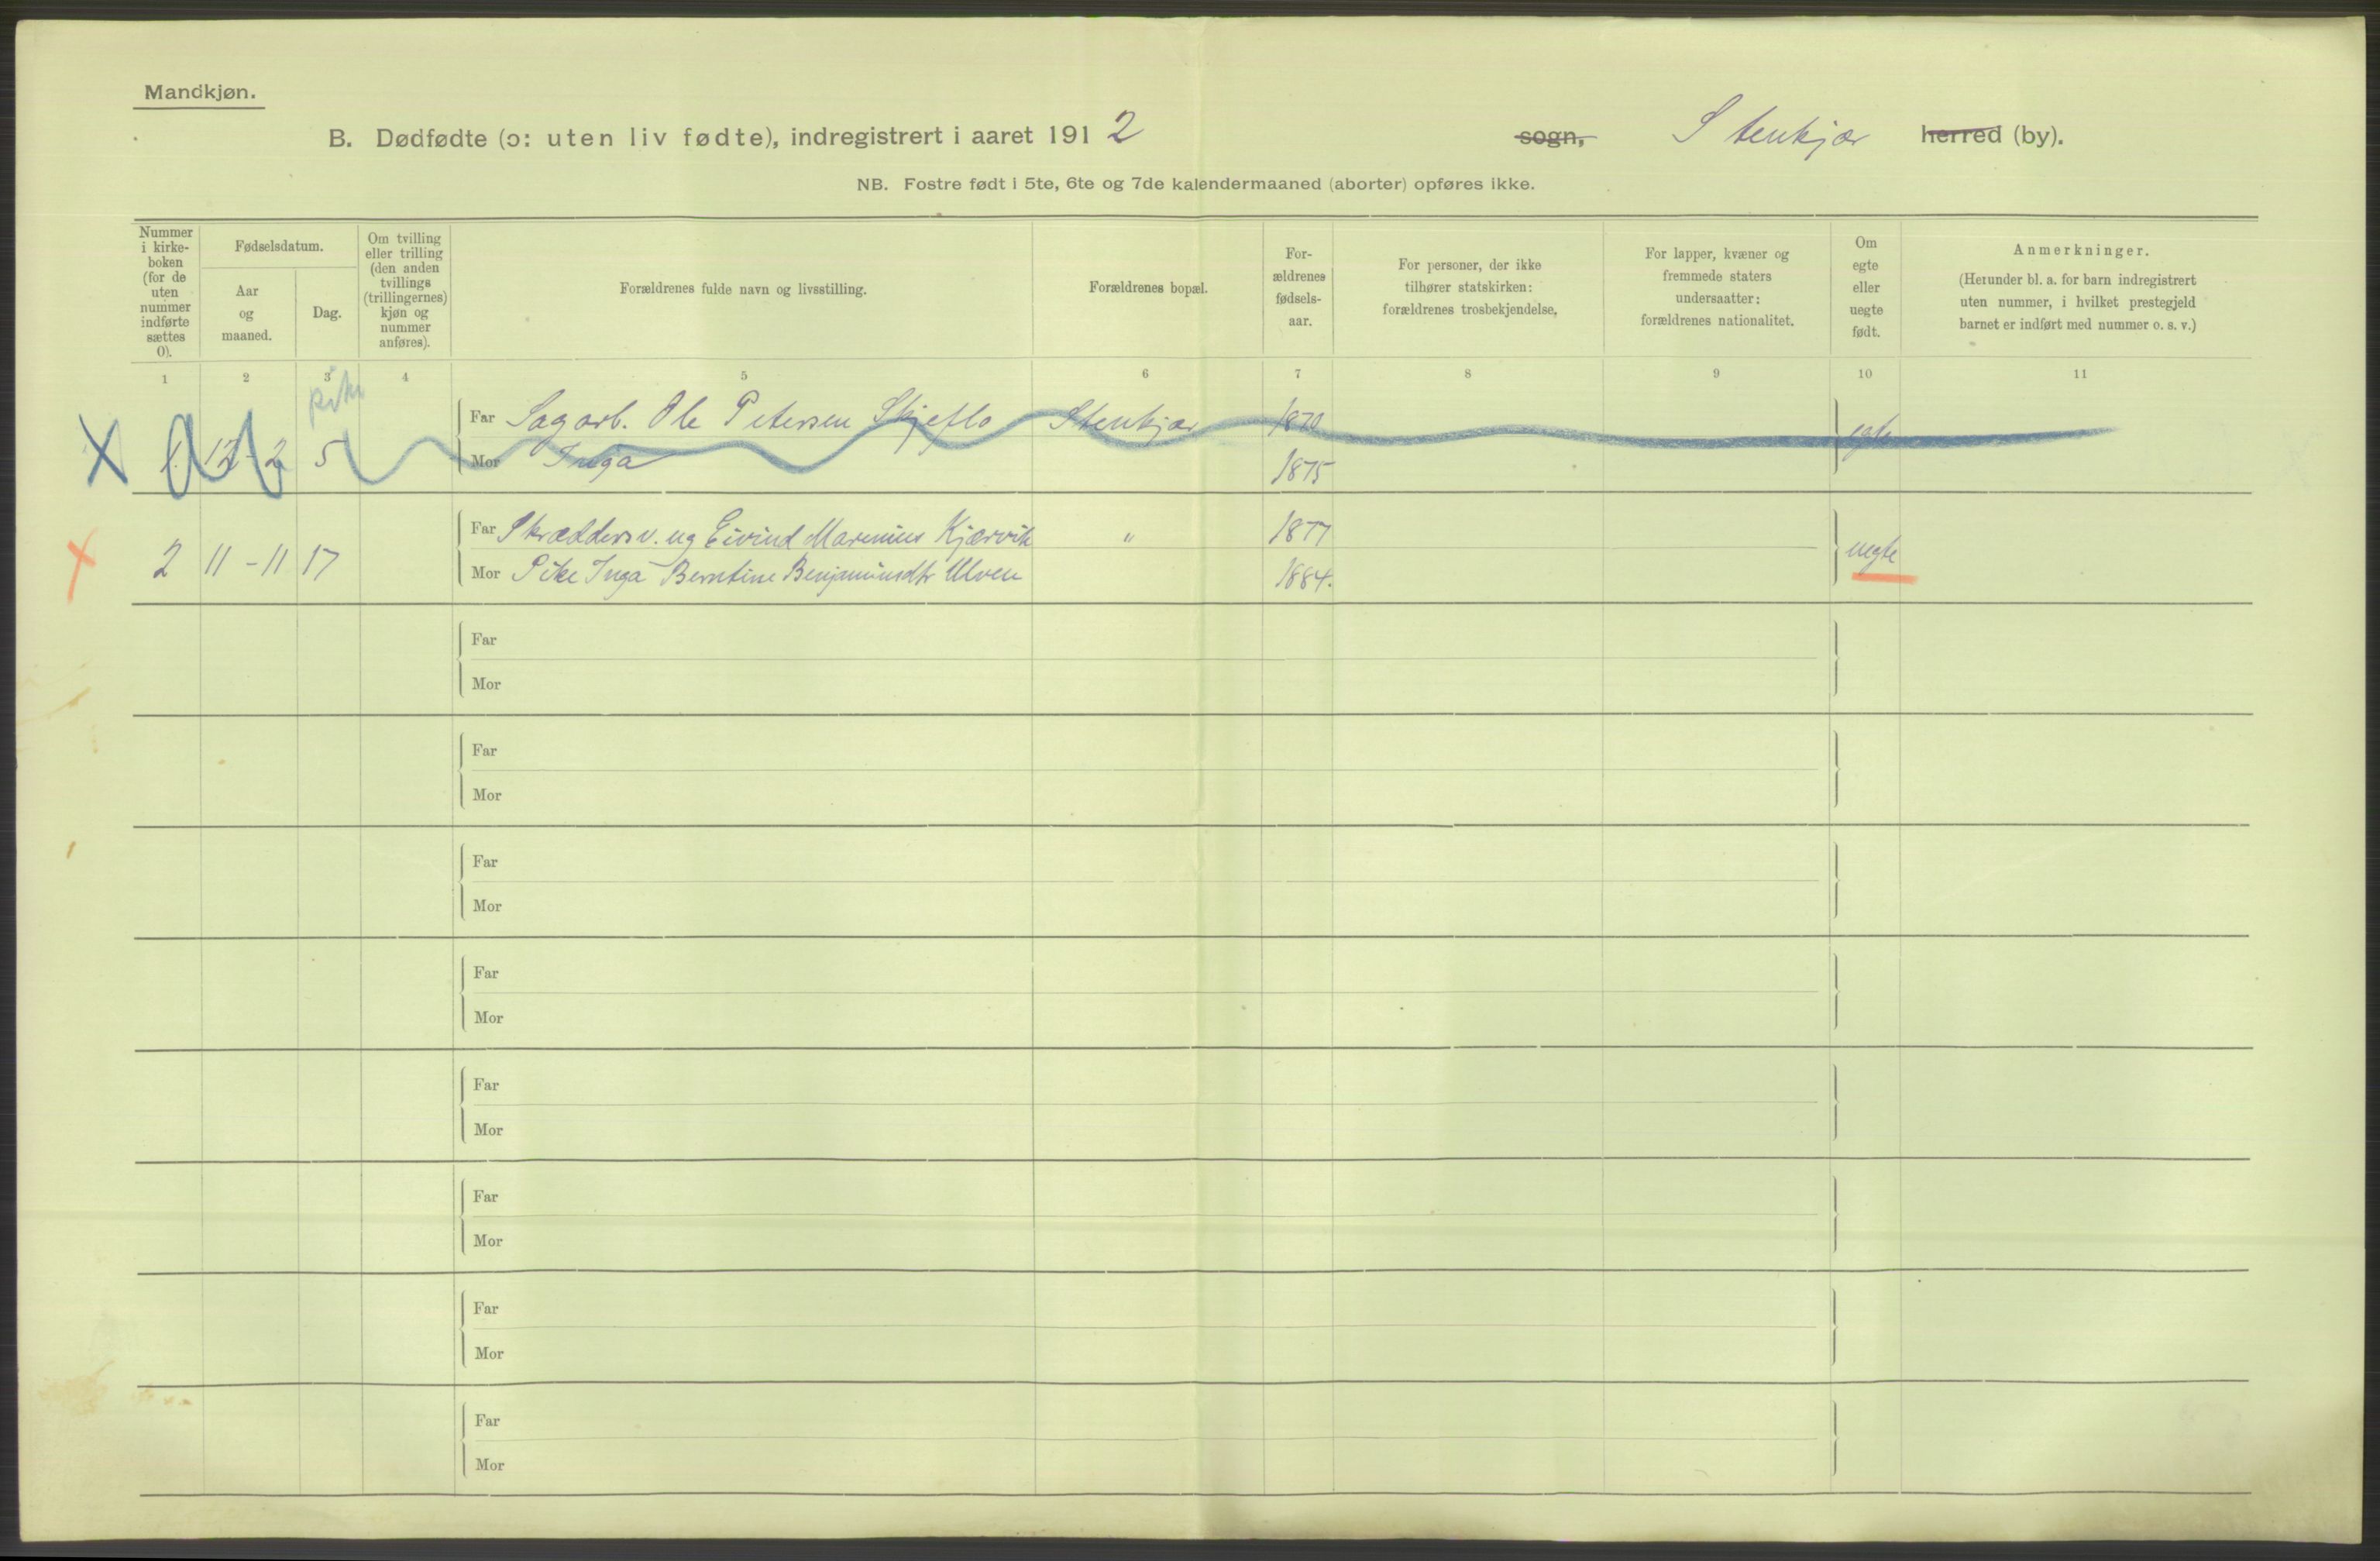 Mandkjøn.
B. Dødfødte (ɔ: uten liv fødte), indregistrert i aaret 1912 sogn, Stenkjær herred (by).
NB. Fostre født i 5te, 6te og 7de kalendermaaned (aborter) opføres ikke.
Nummer
i kirke-
boken
(for de
uten
nummer
indførte
sættes
0).
Fødselsdatum.
Aar
og
maaned.
Dag.
Om tvilling
eller trilling
(den anden
tvillings
(trillingernes)
kjøn og
nummer
anføres).
Forældrenes fulde navn og livsstilling.
Forældrenes bopæl.
For-
ældrenes
fødsels-
aar.
For personer, der ikke
tilhører statskirken:
forældrenes trosbekjendelse.
For lapper, kvæner og
fremmede staters
undersaatter:
forældrenes nationalitet.
Om
egte
eller
uegte
født.
Anmerkninger.
(Herunder bl. a. for barn indregistrert
uten nummer, i hvilket prestegjeld
barnet er indført med nummer o. s. v.)
1 2 3 4 5 6 7 8 9 10 11
pike
X 1. 12-2 5 Far Sagarb. Ole Petersen Skjeflo Stenkjær 1870 egte
Mor Inga 1875
X 2 11-11 17 Far Skræddersv. ug Eivind Marenius Kjærvik " 1877 uegte
Mor Pike Inga Berntine Benjaminsdtr Ulven 1884.
Far
Mor
Far
Mor
Far
Mor
Far
Mor
Far
Mor
Far
Mor
Far
Mor
Far
Mor